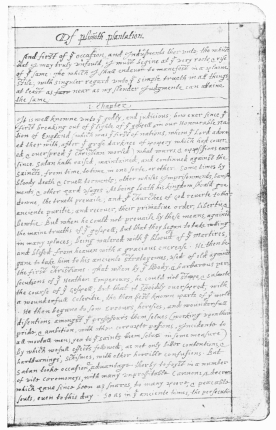 Of plimoth plantation.
And first of yᵉ occasion, and Indusments ther unto; the which
that I may truly unfould, I must begine at yᵉ very roote, & rise
of yᵉ same. The which I shall endevor to manefest in a plaine
stile; with singuler regard unto yᵉ simple trueth in all things,
at least as near as my slender Judgmente can attaine
the same.
1. Chapter.
It is well knowne unto yᵉ godly, and judicious, how ever since yᵉ
first breaking out of yᵉ lighte of yᵉ gospell, in our Honourable na-
tion of England which was yᵉ first of nations, whom yᵉ Lord adorn-
ed ther with, after yᵉ grosse darknes of popery which had cover-
ed & overspred yᵉ christian world, what warrs & oppositions ever
since satan hath raised, maintained, and continued against the
saincts, from time, to time, in one sorte, or other. Some times by
bloody death & cruell torments, other whiles Imprisonments, banish-
ments, & other hard usages. As being loath his kingdom should goe
downe, the trueth prevaile, and yᵉ churches of god reverte to their
anciente puritie, and recover, their primative order, libertie, &
bewtie. But when he could not prevaile by these means, against
the maine trueths of yᵉ gospell, but that they began to take rootting
in many places, being watered with yᵉ blood of yᵉ martires,
and blessed from heaven with a gracious encrease. He then be-
gane to take him to his anciente strategemes, used of old against
the first christians. That when by yᵉ bloody, & barbarous per-
secutions of yᵉ Heathen Emperours, he could not stoppe, & subverte
the course of yᵉ gospell, but that it speedily overspred, with
a wounderfull celeritie, the then best known parts of yᵉ world.
He then begane to sow errours, heresies, and wounderfull
dissentions amongst yᵉ professours them selves (working upon their
pride, & ambition, with other corrupte passions, Incidente to
all mortall men, yea to yᵉ saints them selves in some measure)
by which wofull effects followed, as not only bitter contentions, &
hartburnings, schismes, with other horrible confusions. But
satan tooke occasion & advantage therby to foyst in a number
of vile ceremoneys, with many unprofitable cannons, & decrees
which have since been as snares, to many poore, & peaceable
souls, even to this day. So as in yᵉ anciente times, the persecutio-